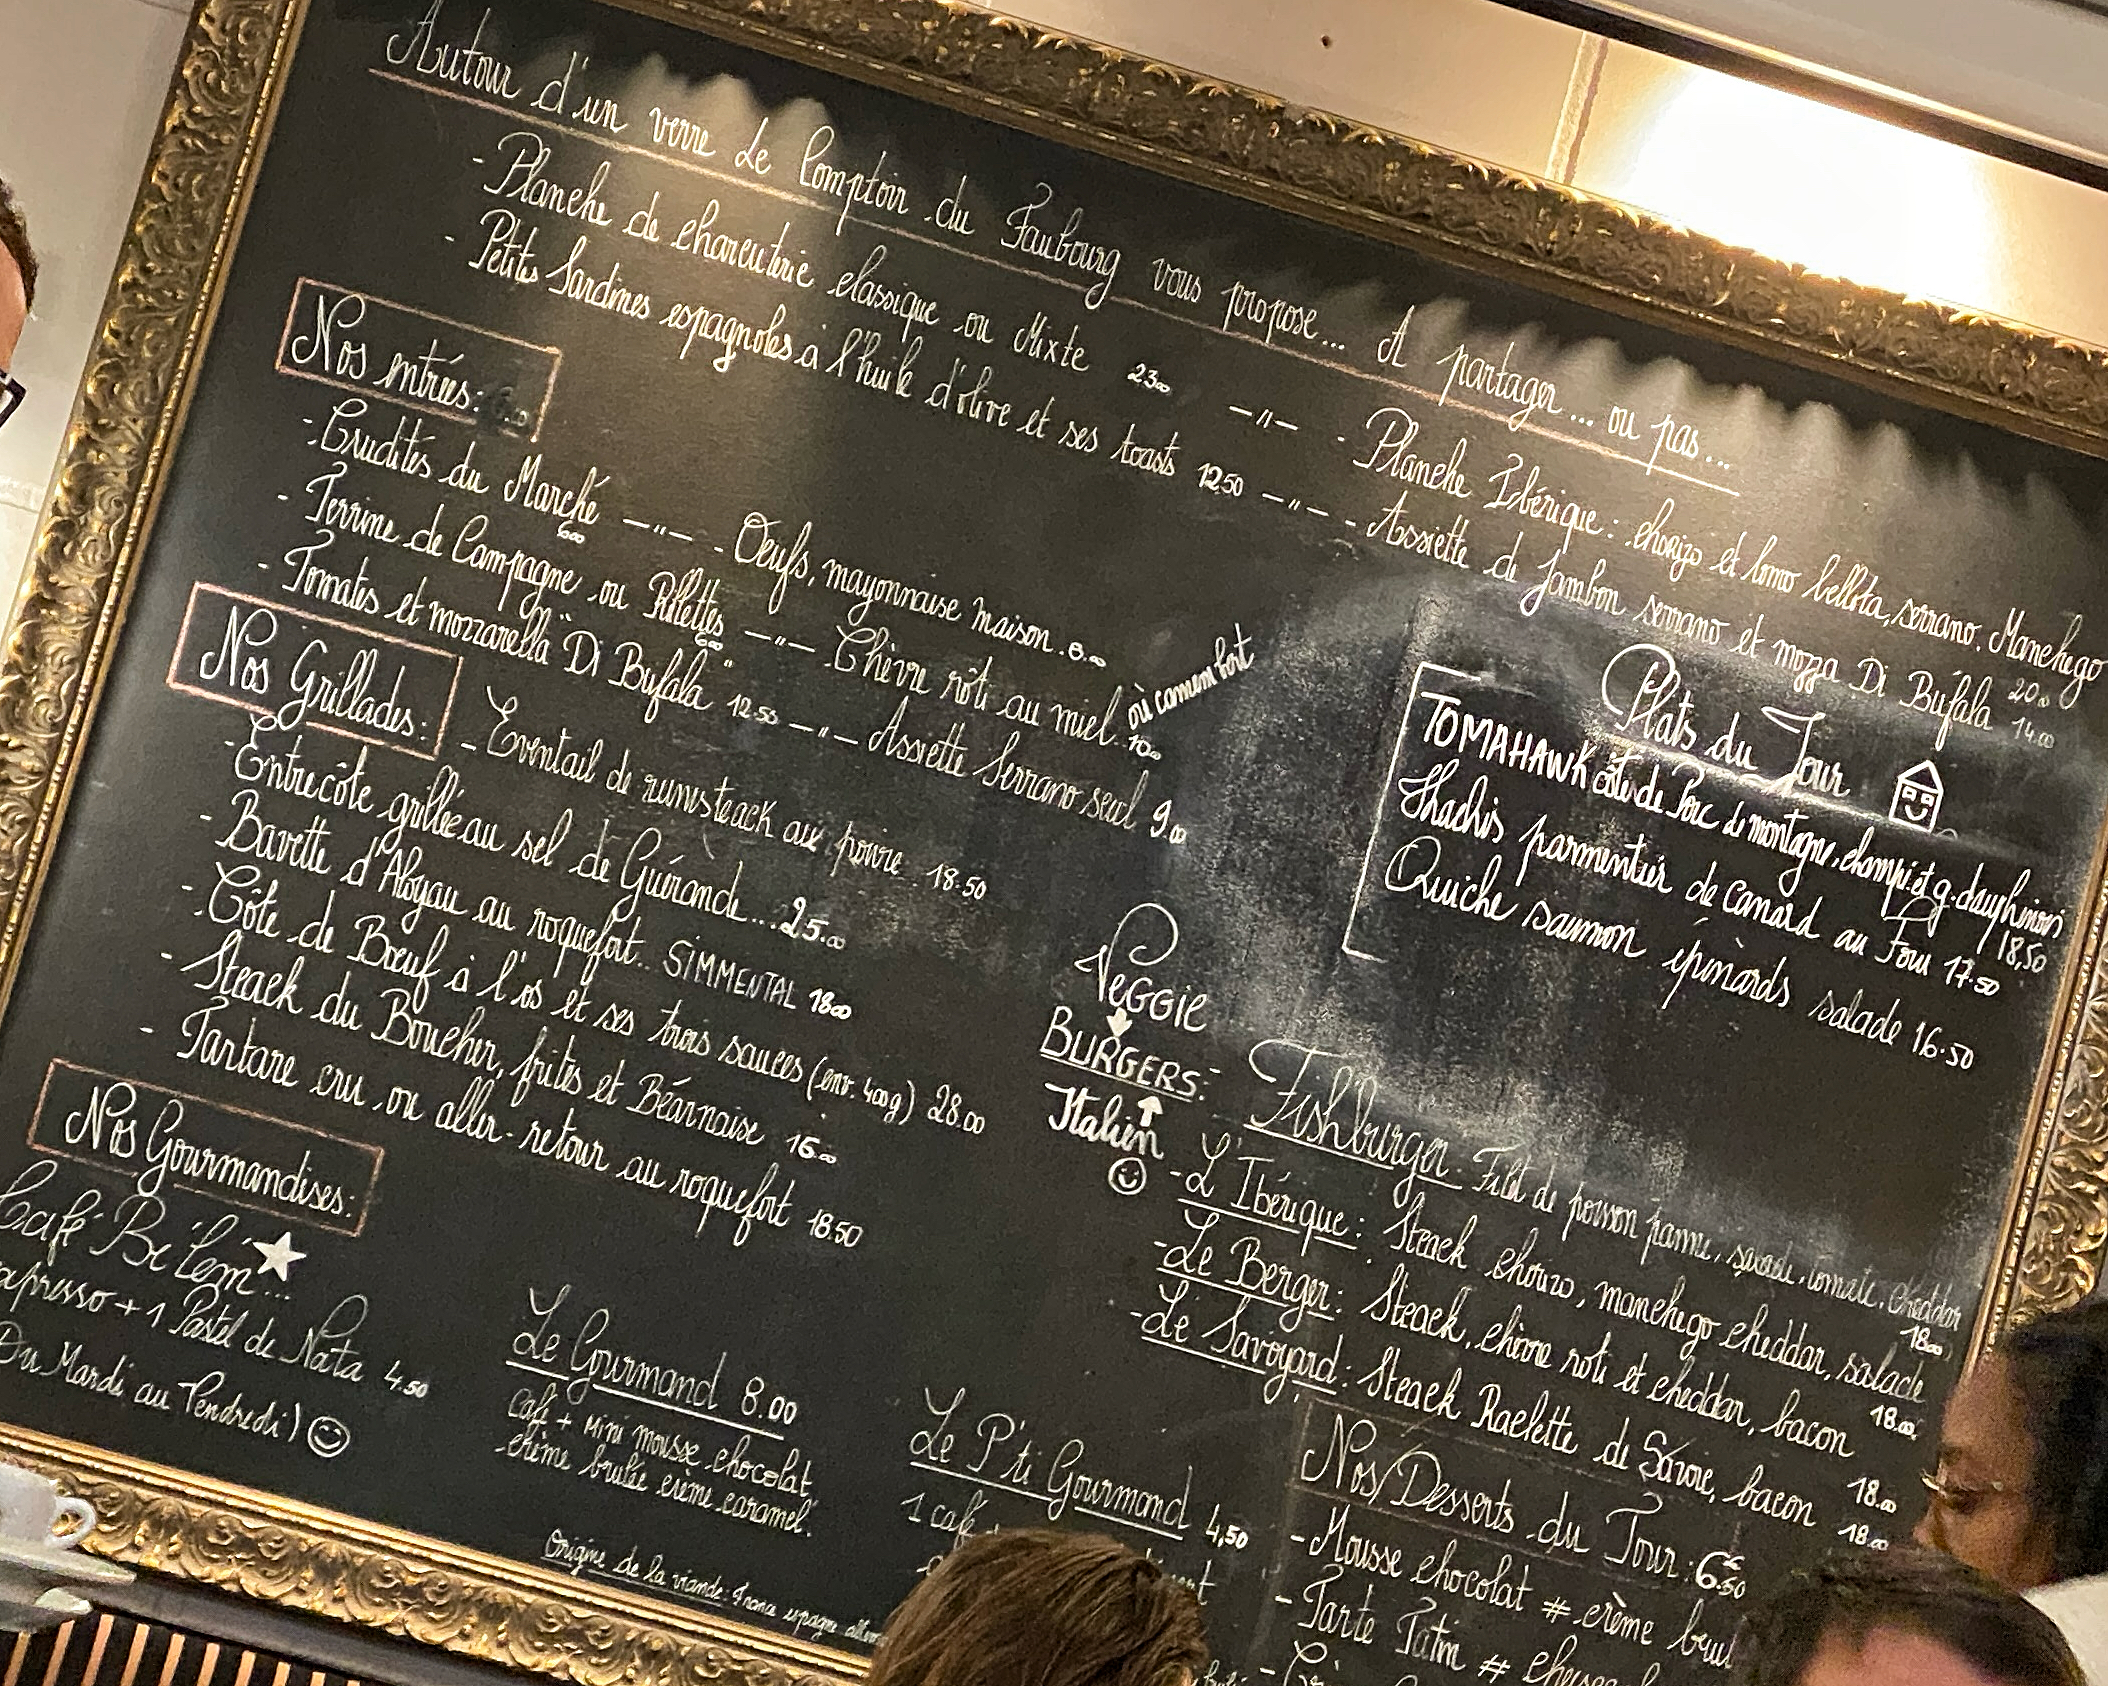 Autour d'un verre Le Comptoir du Faubourg vous propose... A partager... ou pas...
- Planche de charcuterie classique ou Mixte 23.00 —"— - Planche Ibérique : chorizo et lomo bellota, serrano. Manchego 20.00
- Petites Sardines espagnoles à l'huile d'olive et ses toasts 12.50 —"— - Assiette de Jambon serrano et mozza Di Bufala 14.00
Nos entrées:
- Crudités du Marché 6.00 —"— - Oeufs, mayonnaise maison. 6.00
- Terrine de Campagne ou Rillettes 6.00 —"— - Chèvre rôti au miel. 10.00 où camembert
- Tomates et mozzarella "Di Bufala" 12.50 —"— Assiette Serrano seul 9.00
Nos Grillades:
- Eventail de rumsteack aux poivre. 18.50
- Entrecôte grillée au sel de Guérande... 25.00
- Bavette d'Aloyau au roquefort.. SIMMENTAL 18.00
- Côte de Boeuf à l'os et ses trois sauces (env. 400g) 28.00
- Steack du Boucher, frites et Béarnaise 16.00
- Tartare cru ou aller-retour au roquefort 18.50
Plats du Jour
TOMAHAWK côte de Porc de montagne, champi et g. dauphinois 18,50
Hachis parmentier de canard au Four 17.50
Quiche saumon épinards salade 16.50
Veggie
BURGERS:
Italien
- Fishburger. Filet de poisson panné, salade, tomate, cheddar 18.00
- L'Ibérique : Steack chorizo, manchego cheddar, salade 18.00
- Le Berger : Steack, chèvre roti et cheddar, bacon 18.00
- Le Savoyard : Steack Raclette de Savoie, bacon 18.00
Nos Gourmandises:
Café Bé Lém...
+ 1 Pastel de Nata 4.50
Du Mardi au Vendredi)
Le Gourmand 8.00
Café + Mini mousse chocolat
crème brulée crème caramel.
Le P'ti Gourmand 4,50
1 café
Nos Desserts du Jour : 6€50
- Mousse chocolat # crème
- Tarte Tatin #
Origine de la viande: France espagne